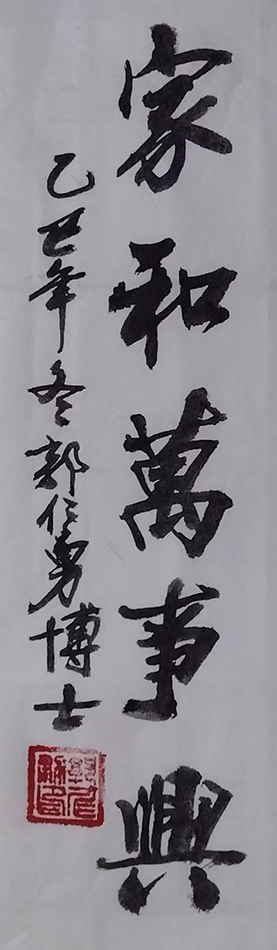 家和萬事興
乙丑年冬郭仁勇博士